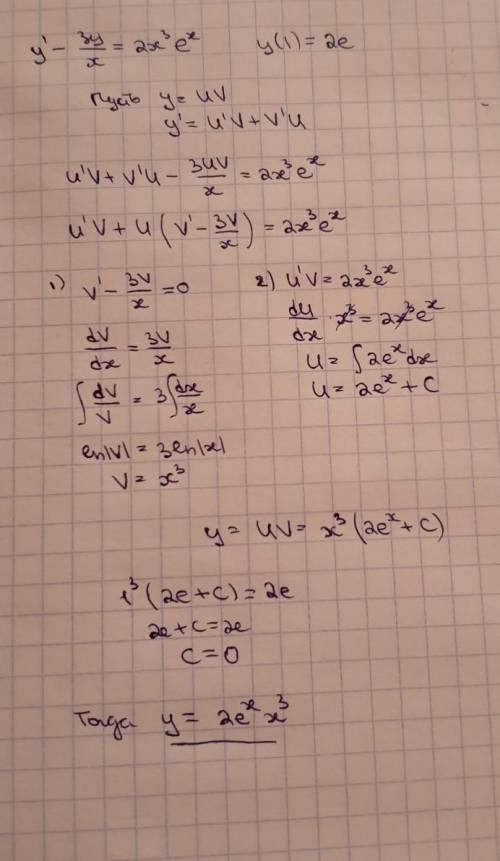 y' - 3y/x = 2x³eˣ     y(1) = 2e
Пусть y = UV
y' = U'V + V'U
U'V + V'U - 3UV/x = 2x³eˣ
U'V + U(V' - 3V/x) = 2x³eˣ
1) V' - 3V/x = 0
dV/dx = 3V/x
∫dV/V = 3∫dx/x
ln|V| = 3ln|x|
V = x³
2) U'V = 2x³eˣ
dU/dx · x³ = 2x³eˣ
U = ∫2eˣdx
U = 2eˣ + C
y = UV = x³(2eˣ + C)
1³(2e + C) = 2e
2e + C = 2e
C = 0
Тогда y = 2eˣx³